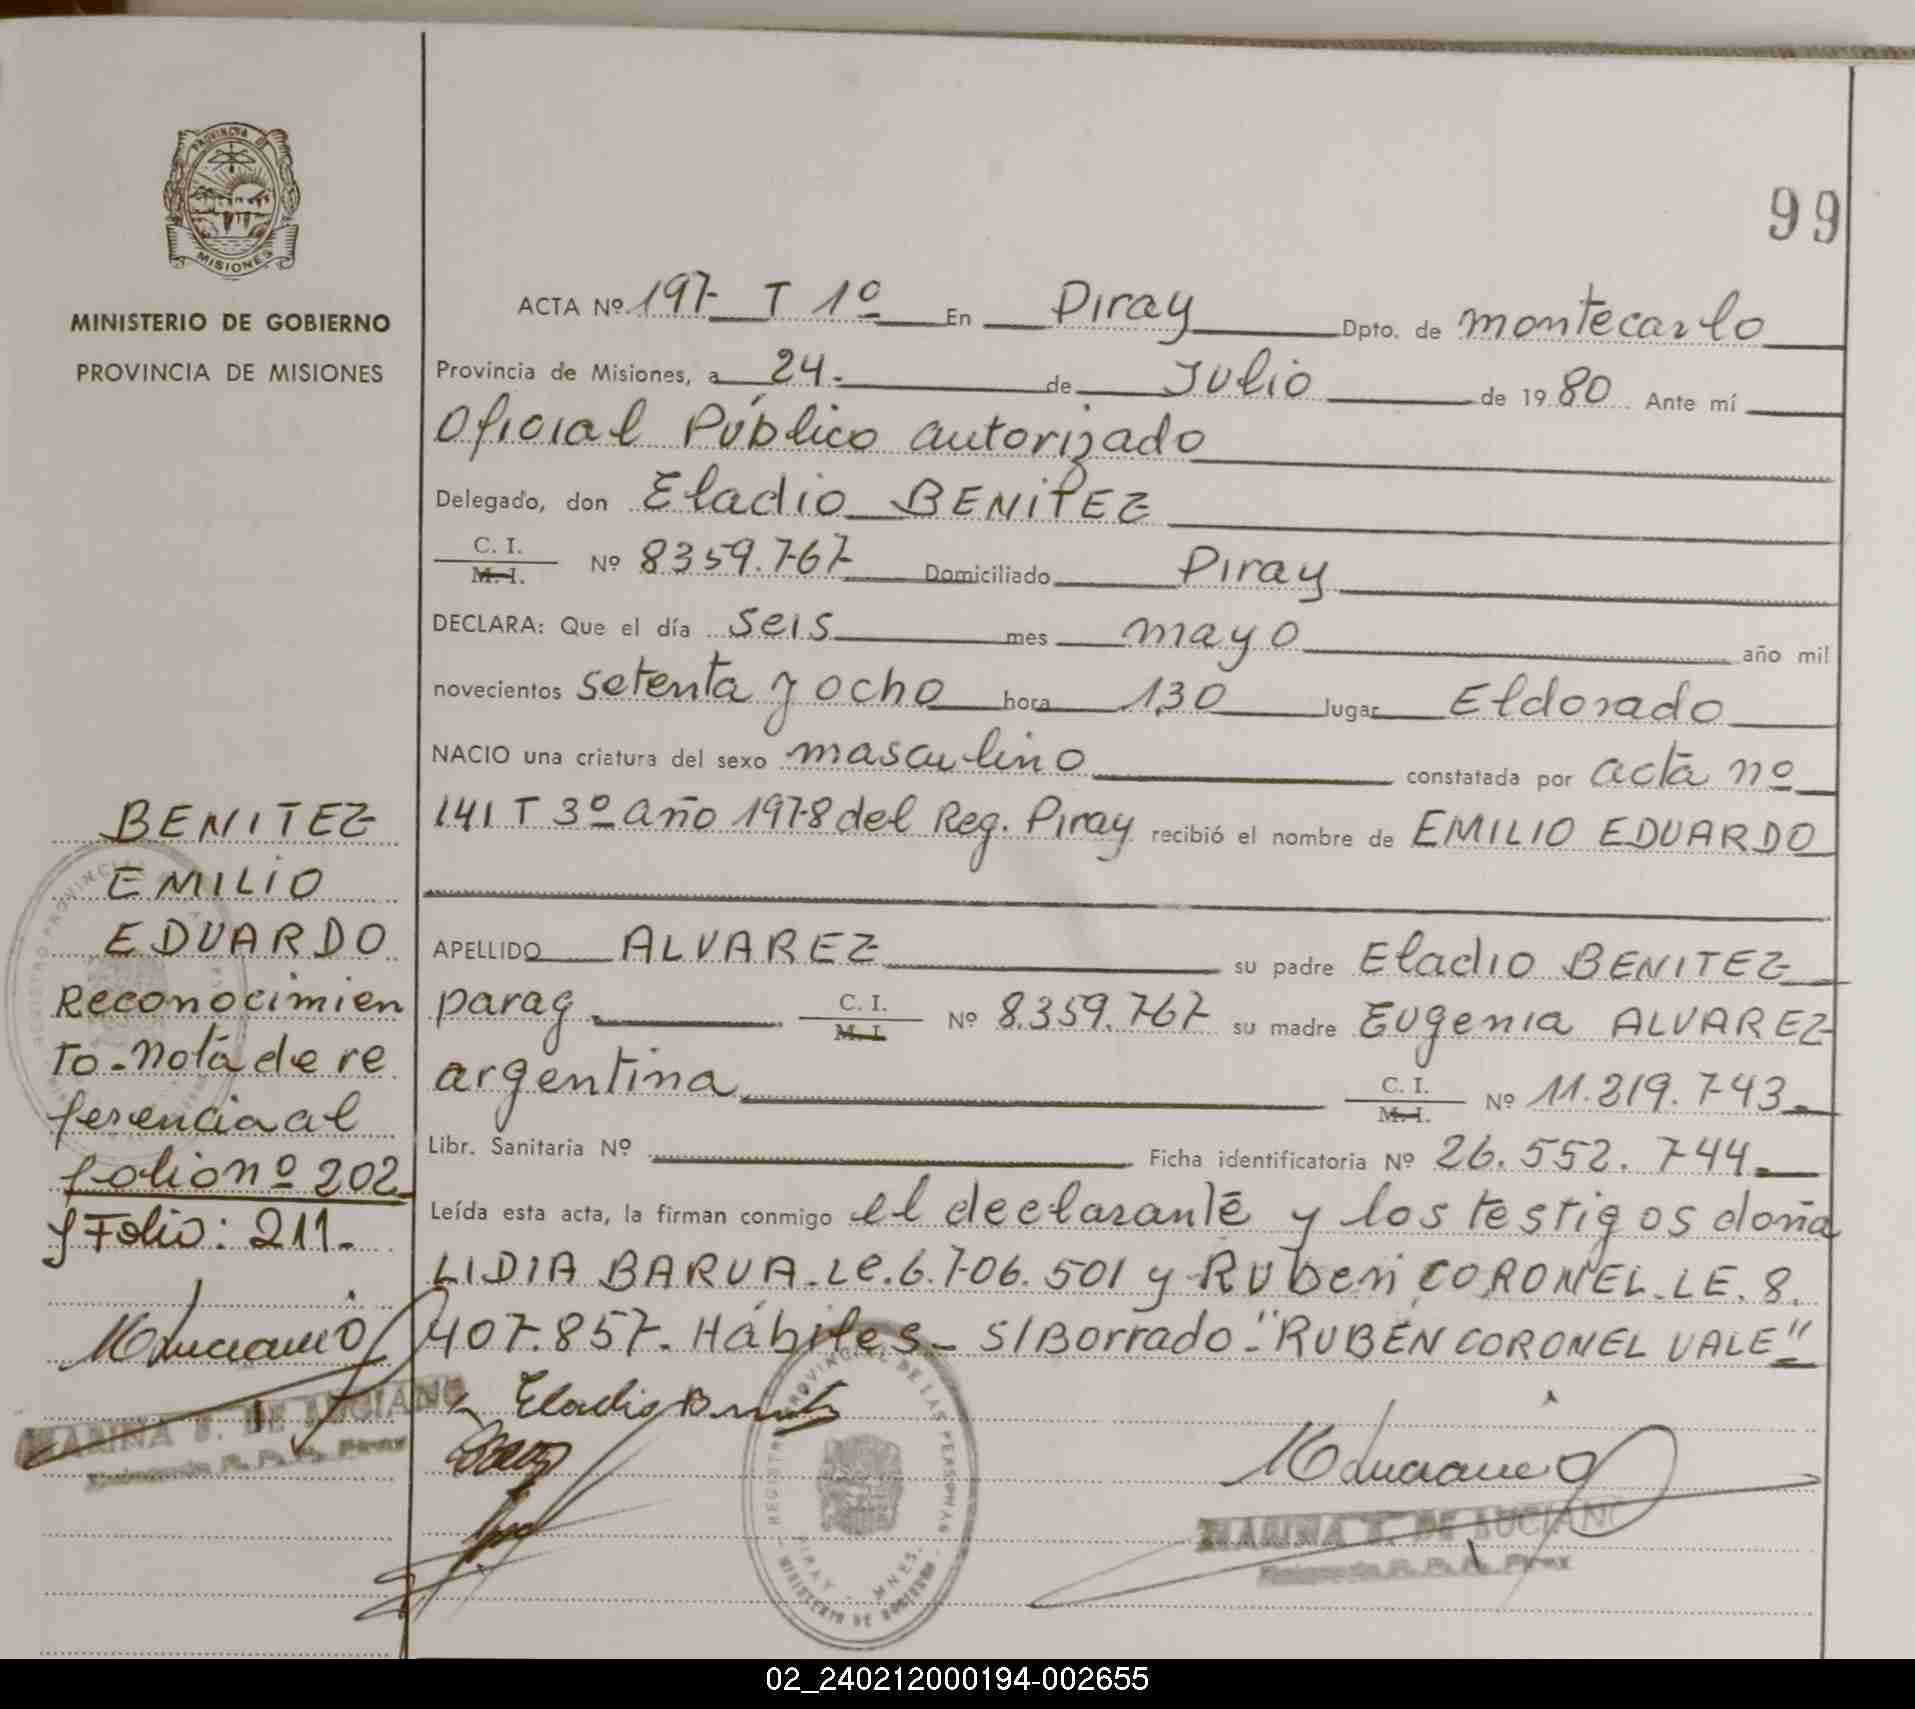 99
PROVINCIA DE
MISIONES
MINISTERIO DE GOBIERNO
PROVINCIA DE MISIONES
ACTA Nº 197 T 1º En Piray Dpto. de montecarlo
Provincia de Misiones, a 24.- de Julio de 1980 Ante mí
Oficial Público autorizado
Delegado, don Eladio BENITEZ
C. I.
M. I. Nº 8359.767 Domiciliado Piray
DECLARA: Que el día seis mes mayo año mil
novecientos setenta y ocho hora 1,30 lugar Eldorado
NACIO una criatura del sexo masculino constatada por acta nº
141 T 3º año 1978 del Reg. Piray recibió el nombre de EMILIO EDUARDO
APELLIDO ALVAREZ su padre Eladio BENITEZ
parag. C. I.
M. I. Nº 8.359.767 su madre Eugenia ALVAREZ
argentina C. I.
M. I. Nº 11.219.743.-
Libr. Sanitaria Nº Ficha identificatoria Nº 26.552.744.-
Leída esta acta, la firman conmigo el declarante y los testigos doña
LIDIA BARUA.LE.6.706.501 y Ruben CORONEL.LE.8.
407.857. Hábiles.- S/Borrado: "RUBEN CORONEL VALE"
BENITEZ
EMILIO
EDUARDO
Reconocimien
to.nota de re
ferencia al
folio nº 202
y Folio: 211.-
MLuciano
MARINA T. DE LUCIANO
Eladio
REGISTRO PROVINCIAL DE LAS PERSONAS
PIRAY - MNES.
MINISTERIO DE GOBIERNO
MLuciano
MARINA T. DE LUCIANO
02_240212000194-002655